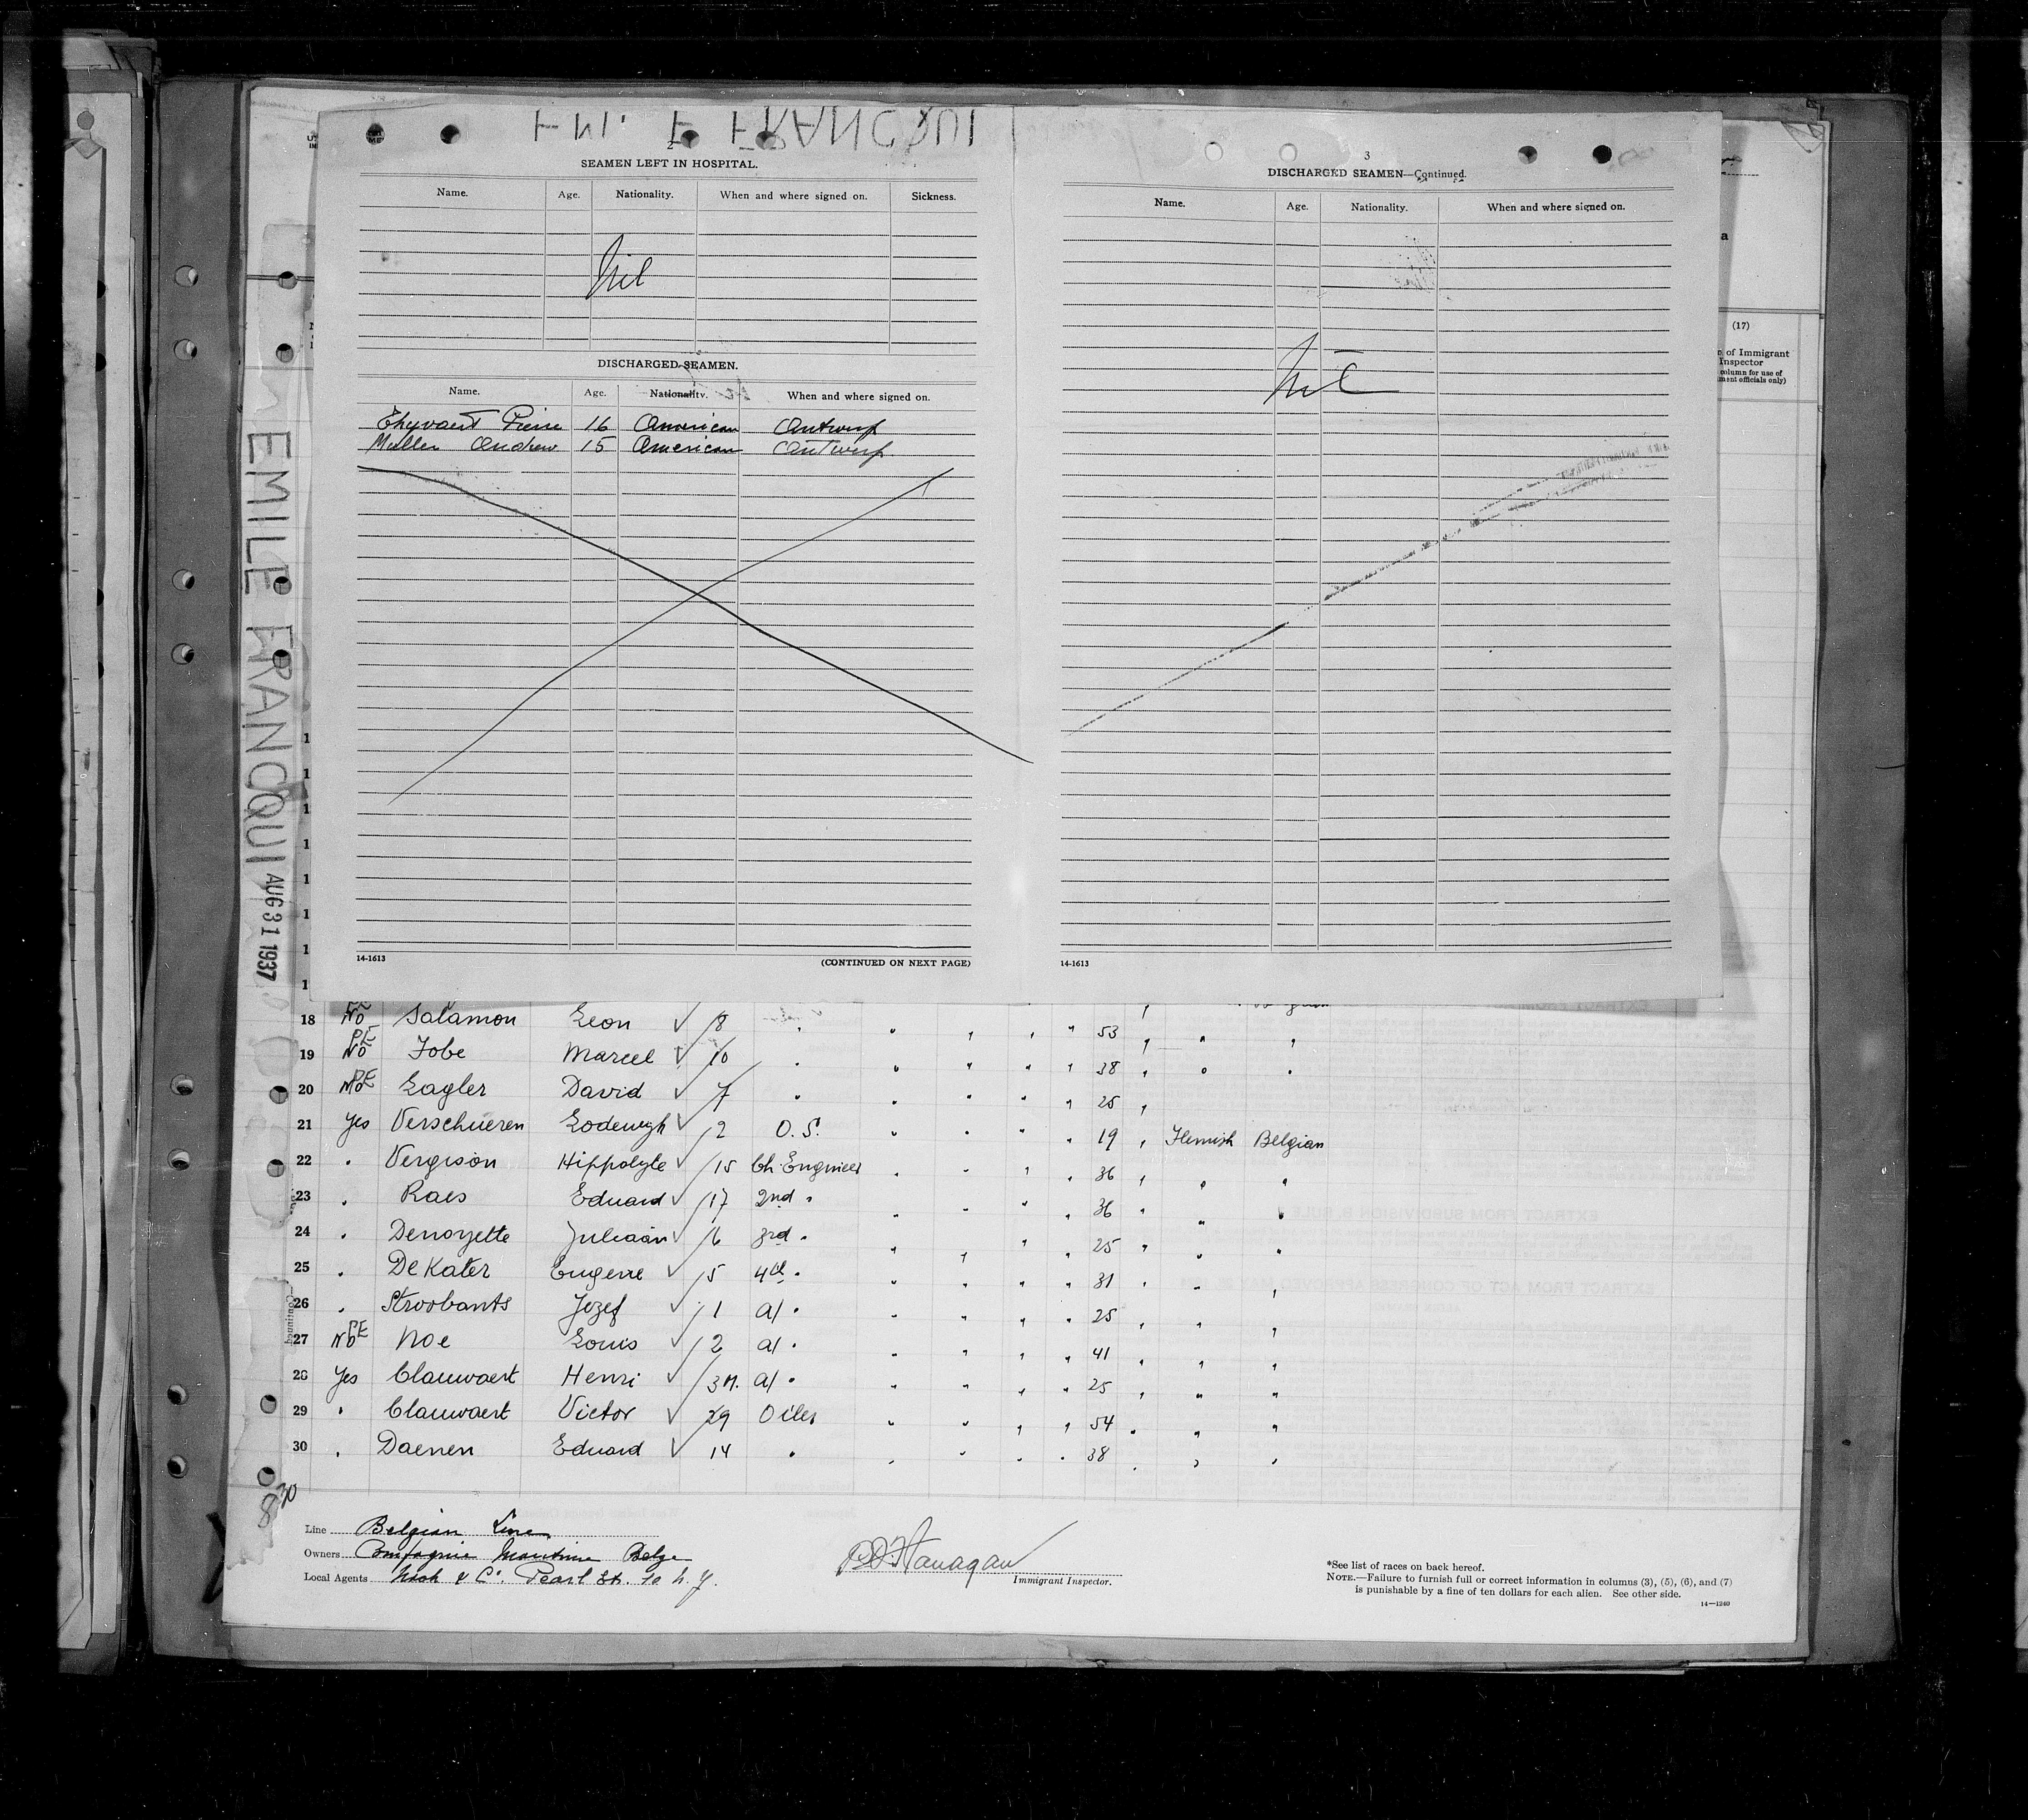 EMILE FRANCQUI AUG 31 1937
2
SEAMEN LEFT IN HOSPITAL.
Name. Age. Nationality. When and where signed on. Sickness.
Nil
DISCHARGED SEAMEN.
Name. Age. Nationality. When and where signed on.
Pierre 16 American Antwerp
Muller Andrew 15 American Antwerp
14-1613 (CONTINUED ON NEXT PAGE)
3
DISCHARGED SEAMEN—Continued.
Name. Age. Nationality. When and where signed on.
Nil
14-1613
(17)
of Immigrant
Inspector
column for use of
officials only)
18 No Salamon Leon 18 " " " " " 53 " " "
19 No PE Jobe Marcel 10 " " " " " 38 " " "
20 No PE Lagler David 7 " " " " " 25 "
21 Yes Verschueren Lodewyh 2 O.S. " " " " 19 " Flemish Belgian
22 " Vergison Hippolyte 15 Ch. Engineer " " " " 36 " " "
23 " Raes Eduard 17 2nd " " " " " 36 " " "
24 " Denoyette Juliaan 6 3rd " " " " " 25 " " "
25 " De Kater Eugene 5 4th " " " " " 31 " " "
26 " Stroobants Jozef 1 a/ " " " " " 25 " " "
27 No PE Noe Louis 2 a/ " " " " " 41 " " "
28 Yes Clauwaert Henri 3 M. a/ " " " " " 25 " " "
29 " Clauwaert Victor 29 Oiler " " " " 54 " " "
30 " Daenen Eduard 14 " " " " " 38 " " "
30
Line Belgian Line
Owners Compagnie Maritime Belge
Local Agents & Co. Pearl Str. 10 N.Y.
Immigrant Inspector.
*See list of races on back hereof.
NOTE.—Failure to furnish full or correct information in columns (3), (5), (6), and (7)
is punishable by a fine of ten dollars for each alien. See other side.
14—1240